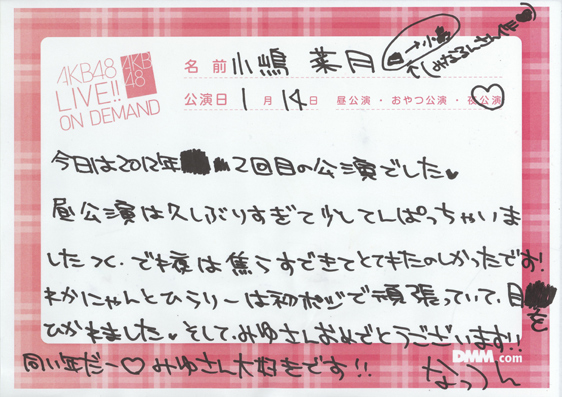 AKB48
LIVE!!
ON DEMAND
AKB
48
名前 小嶋 菜月
→小島
公演日 1月14日 昼公演・おやつ公演・夜公演
今日は2012年 2回目の公演でした♥
昼公演は久しぶりすぎて少してんぱっちゃいま
した>< でも夜は焦らずできてとてもたのしかったです!
わかにゃんとひらりーは初ポジで頑張っていて、目を
ひかれました♥そして、みゆさんおめでとうございます!!
同い年だー♡みゆさん大好きです!!
なっつん
DMM.com